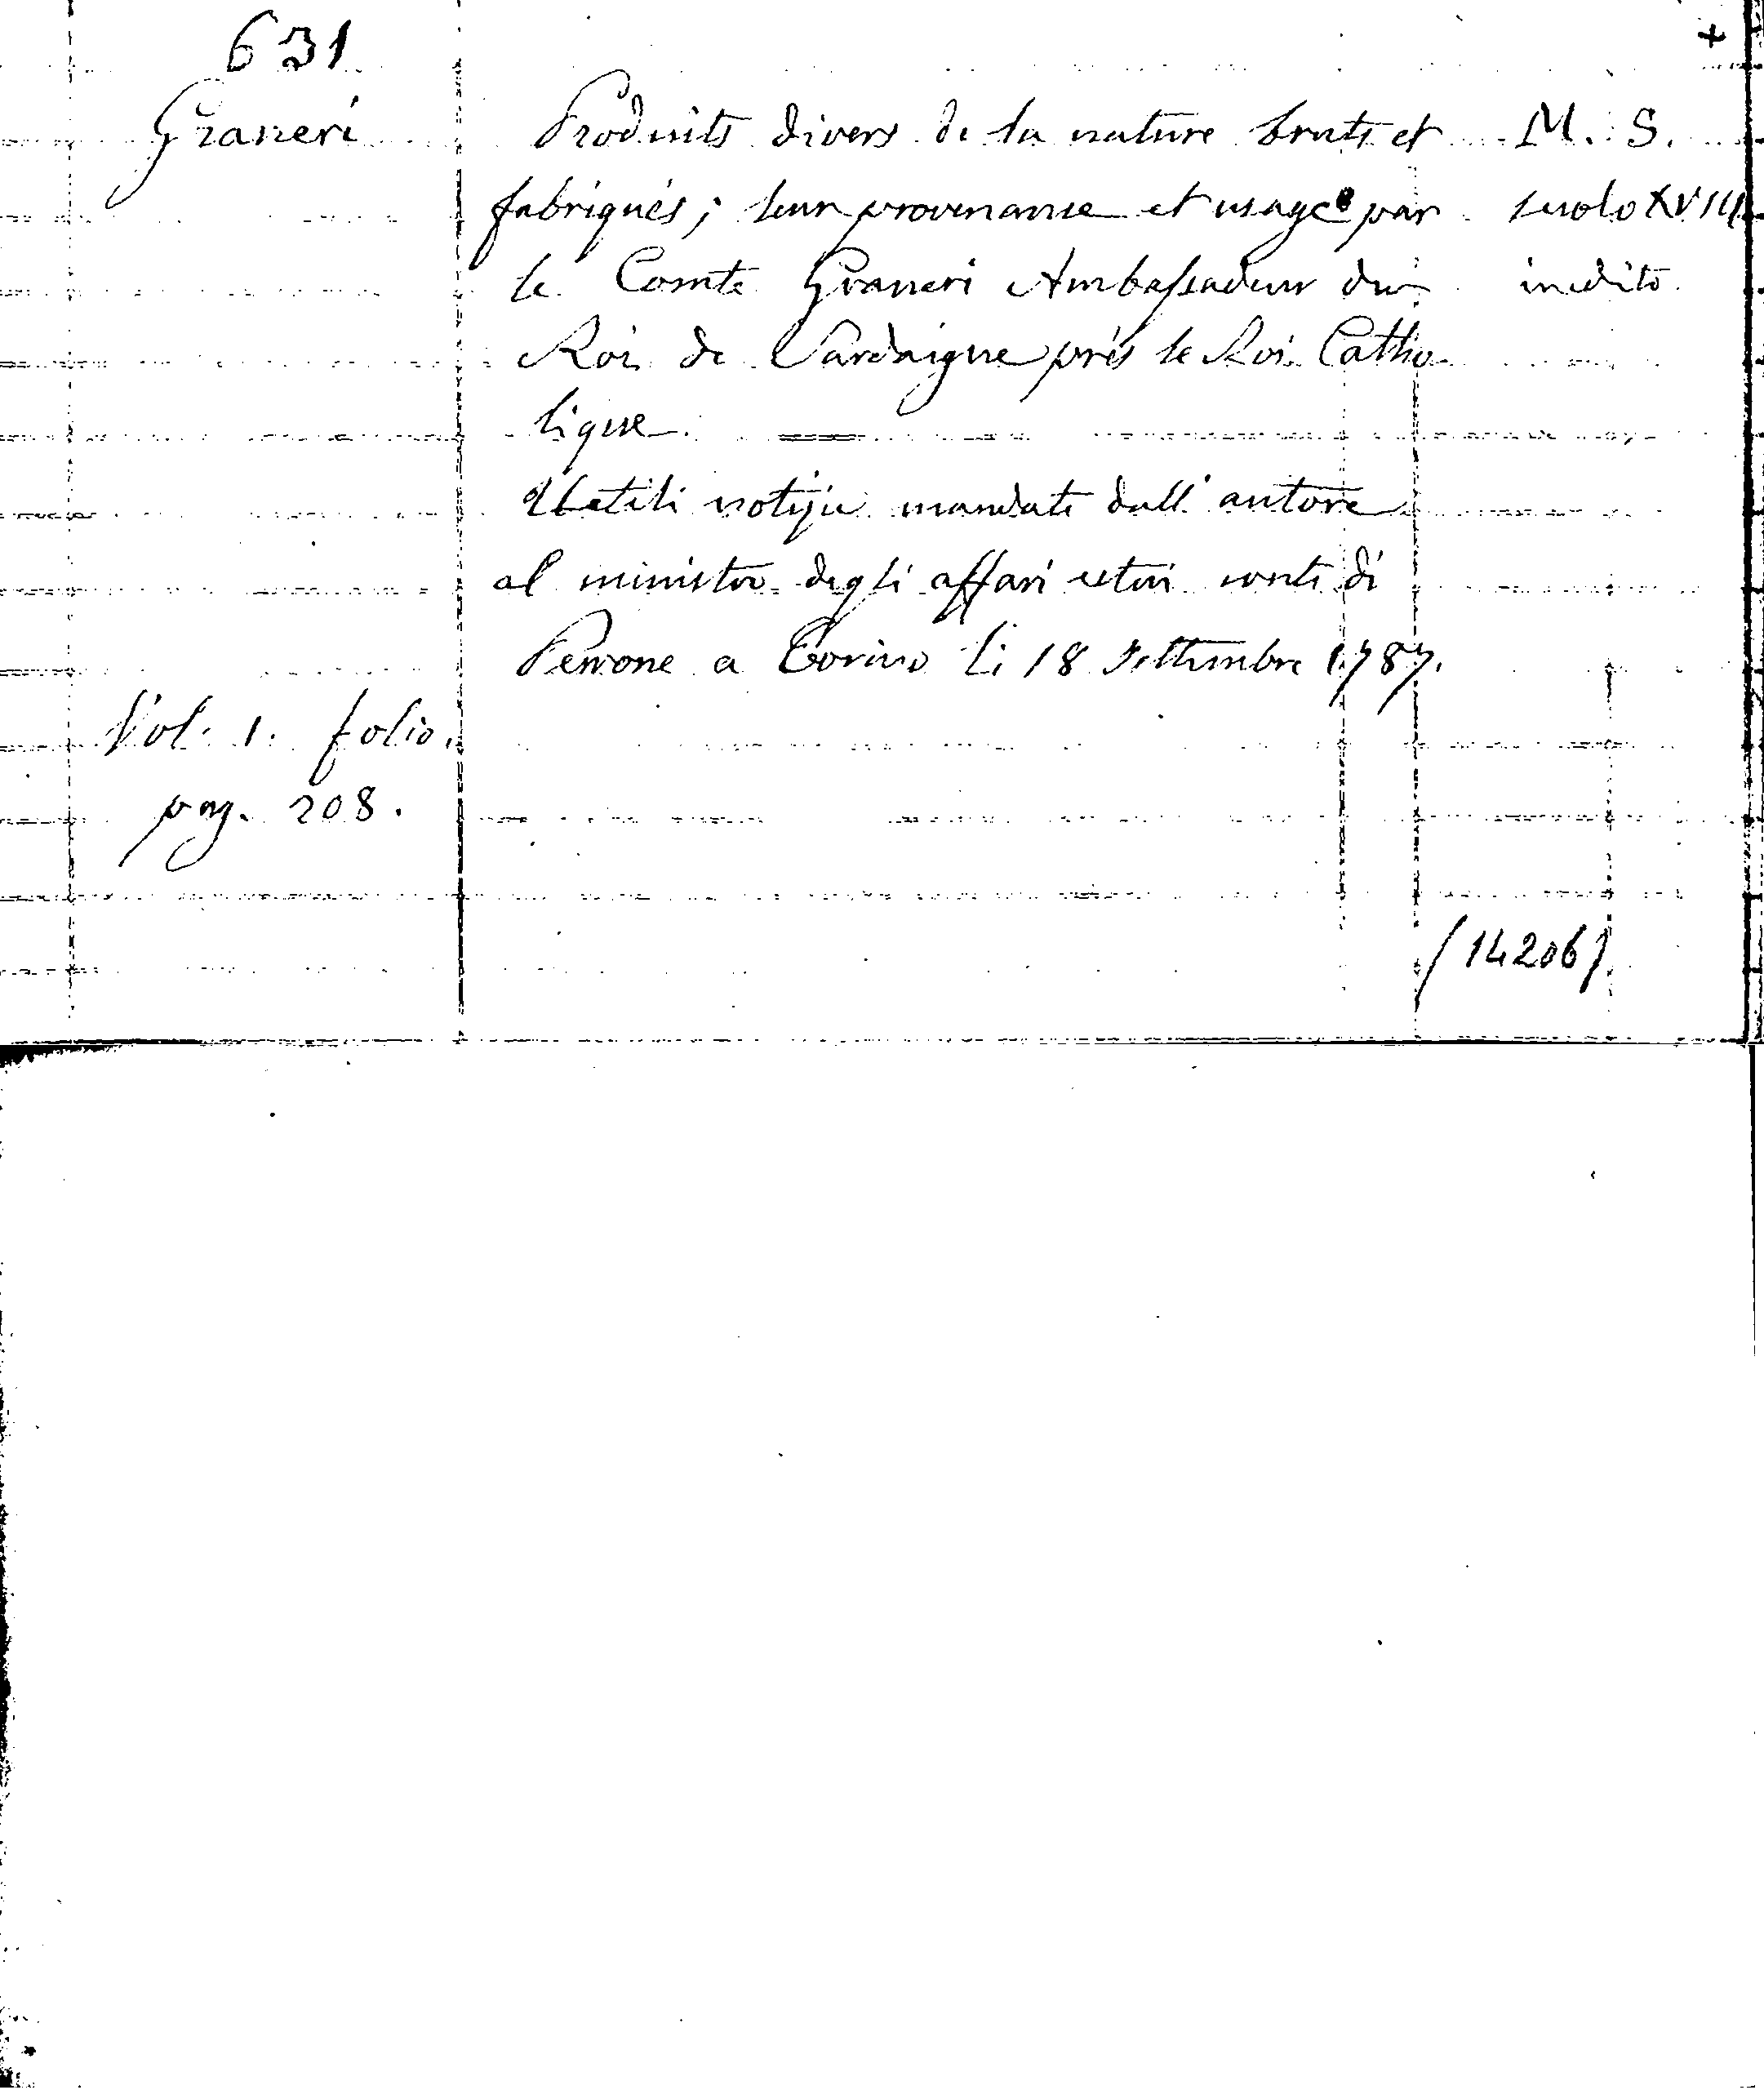 631
+
Graneri
Produits divers de la nature bruts et
M. S.
fabriqués; leur provenance et usage par
secolo XVIII
le Comte Graneri Ambassadeur du
inedito
Roi de Sardaigne près le Roi Catho
lique.
Utili notizie mandate dall' autore
al ministro degli affari esteri conte di
Perrone a Torino li 18 Settembre 1787.
Vol. 1. folio.
pag. 208.
(14206)